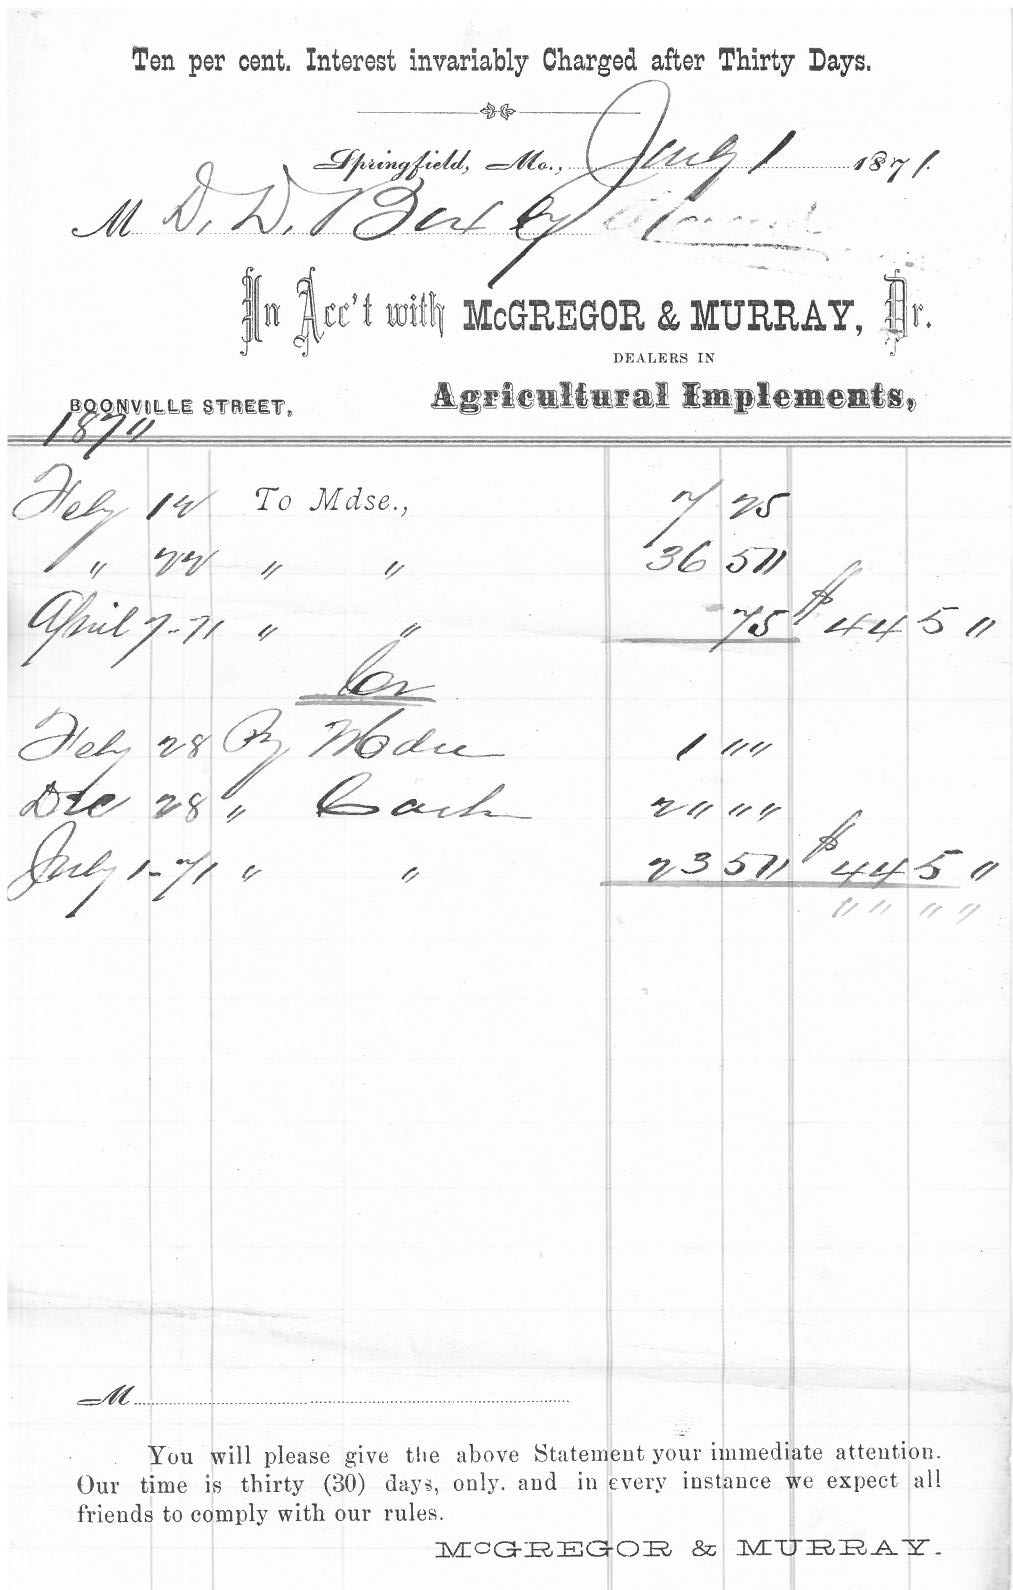 Ten per cent. Interest invariably Charged after Thirty Days.
Springfield, Mo., Jany 1 1871.
M D. D. Berry
In Acc't with McGREGOR & MURRAY, Dr.
DEALERS IN
BOONVILLE STREET, Agricultural Implements,
187"
Feby 12 To Mdse., 7 25
" 22 " " 36 5"
April 7-71 " " 75 $ 44 5"
Cr
Feby 28 By Mdse 1 ""
Dec 28 " Cash 2" ""
July 1-71 " " 23 5" $ 44 5"
"" ""
M
You will please give the above Statement your immediate attention.
Our time is thirty (30) days, only. and in every instance we expect all
friends to comply with our rules.
McGREGOR & MURRAY.